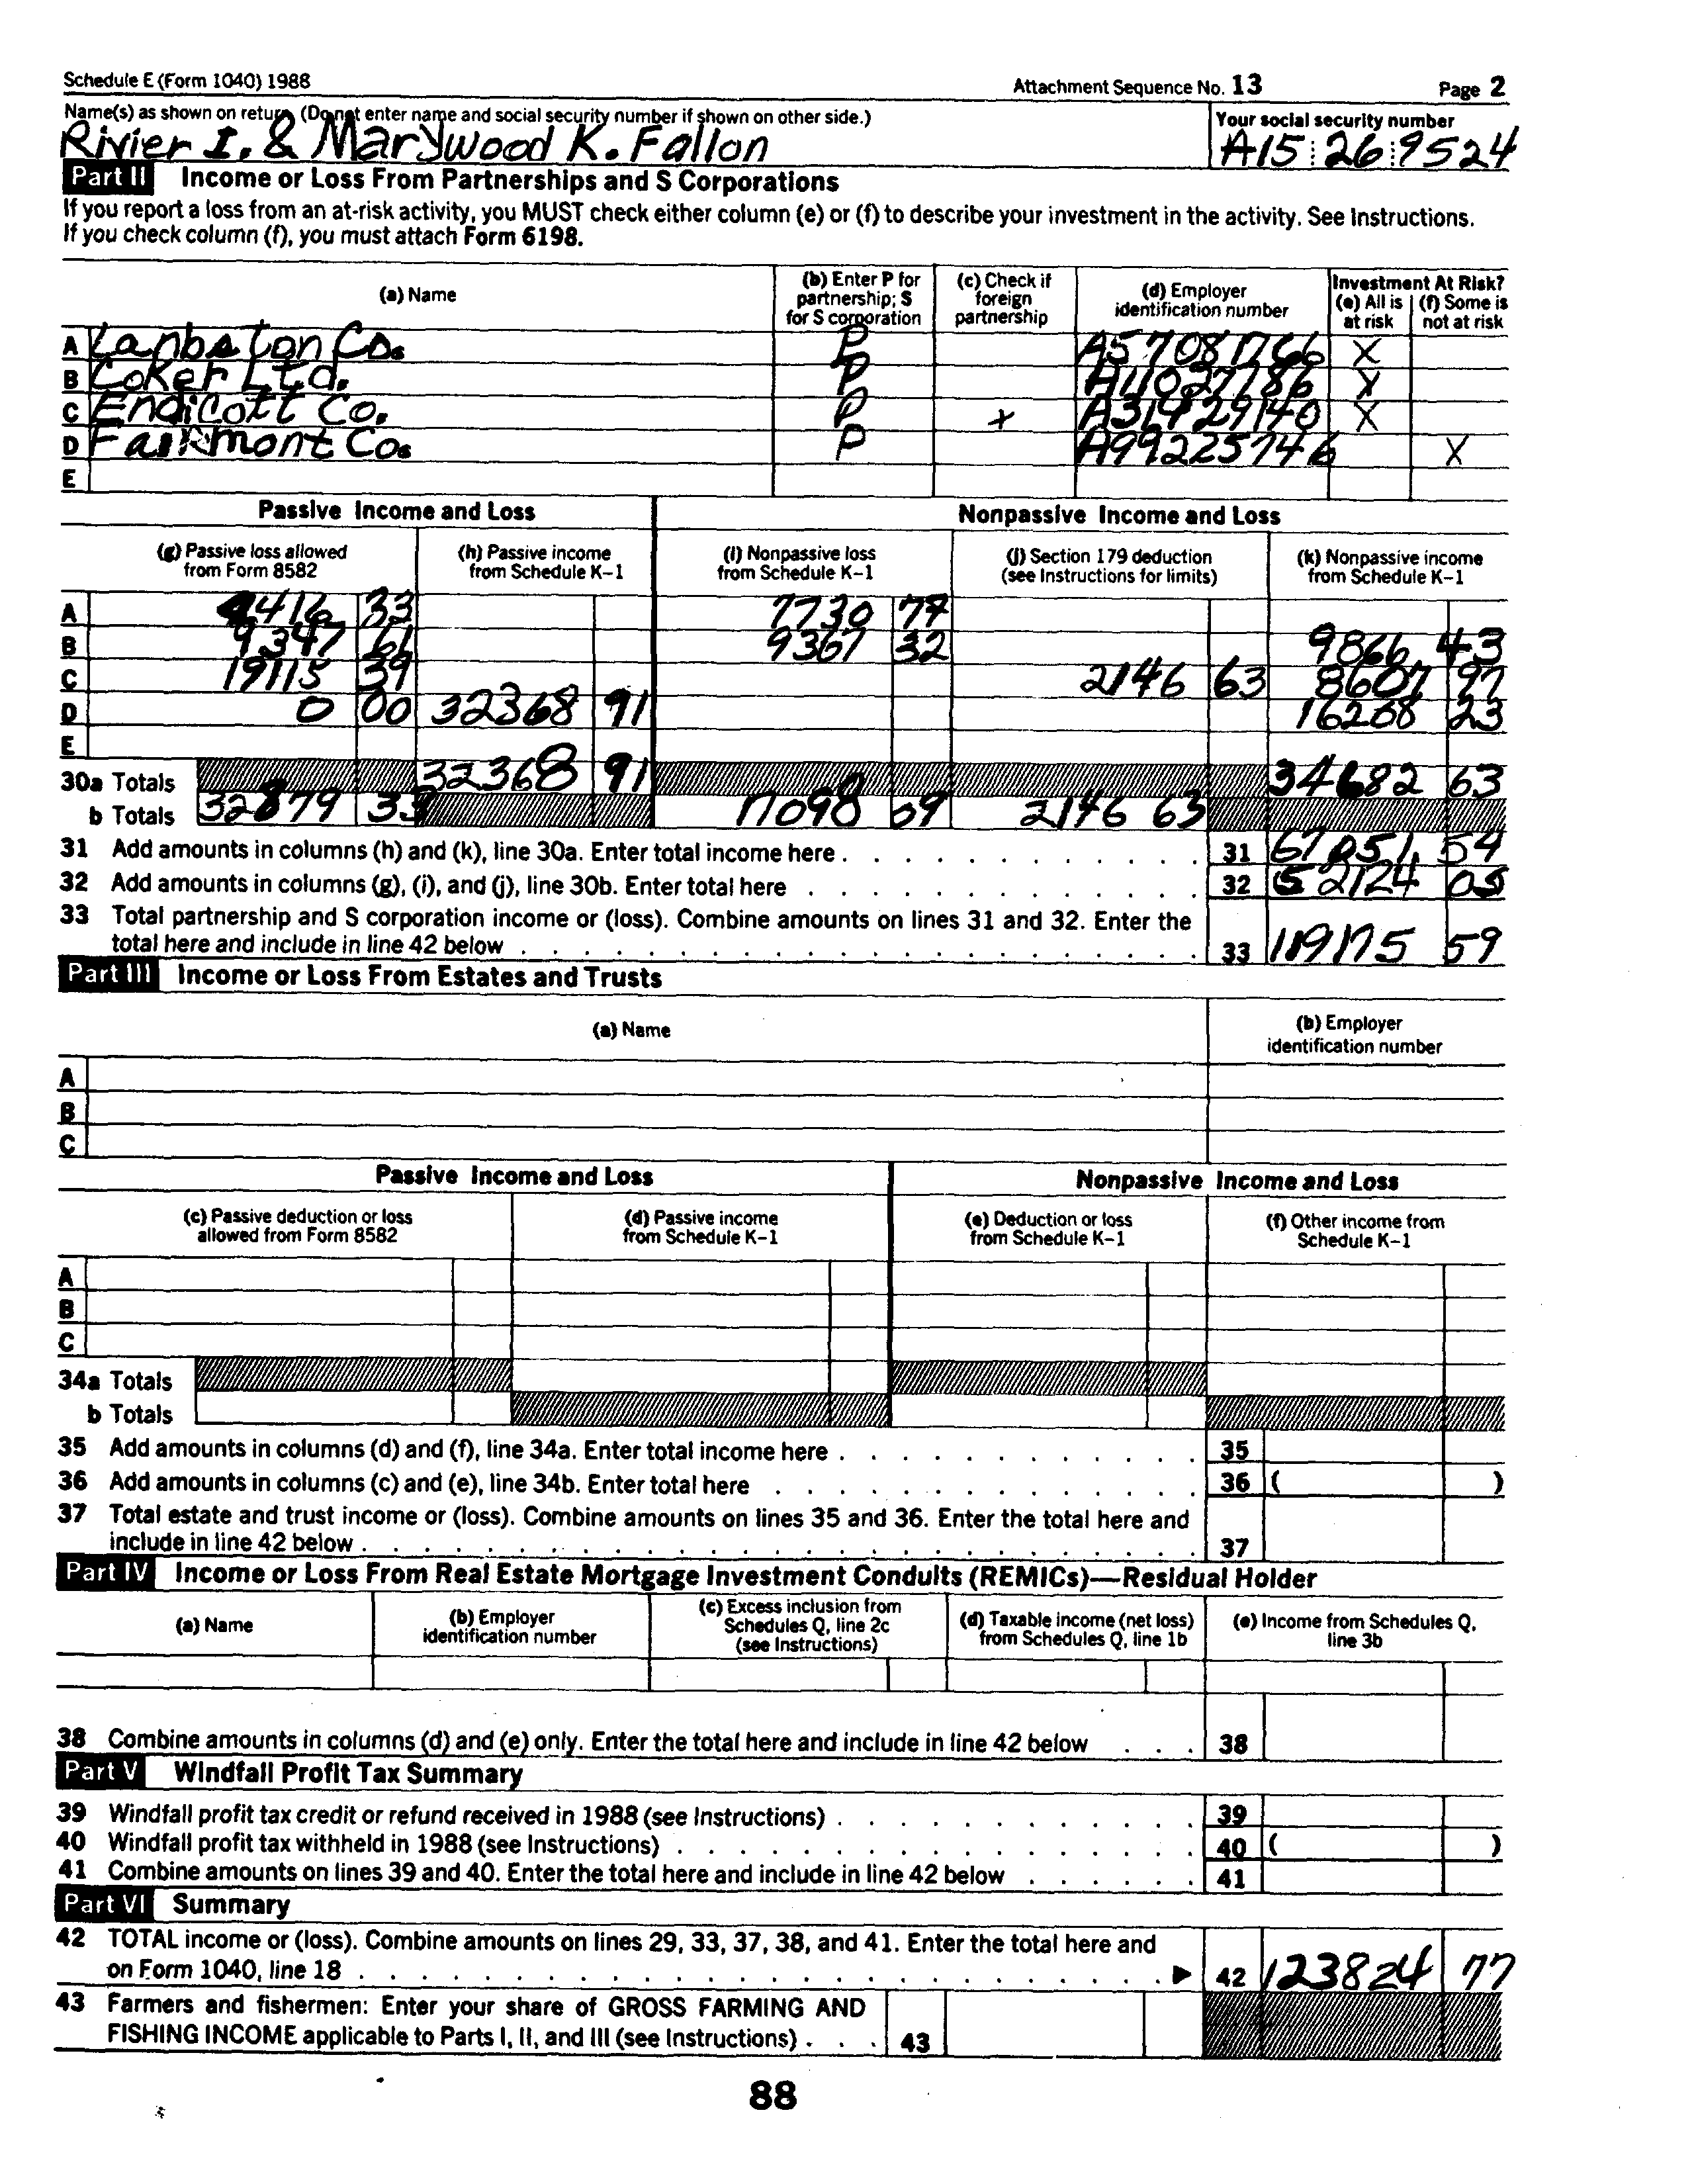 Schedule E (Form 1040) 1988 Attachment Sequence No. 13 Page 2
Name(s) as shown on return. (Do not enter name and social security number if shown on other side.) Your social security number
Rivier I. & Marywood K. Fallon A15 26 9524
Part II Income or Loss From Partnerships and S Corporations
If you report a loss from an at-risk activity, you MUST check either column (e) or (f) to describe your investment in the activity. See Instructions.
If you check column (f), you must attach Form 6198.
(a) Name (b) Enter P for partnership; S for S corporation (c) Check if foreign partnership (d) Employer identification number Investment At Risk? (e) All is at risk (f) Some is not at risk
A Co. P X
B Coker Ltd. P A11027786 X
C Endicott Co. P x A31429140 X
D Fairmont Co. P A99225746 X
E
Passive Income and Loss Nonpassive Income and Loss
(g) Passive loss allowed from Form 8582 (h) Passive income from Schedule K-1 (i) Nonpassive loss from Schedule K-1 (j) Section 179 deduction (see Instructions for limits) (k) Nonpassive income from Schedule K-1
A 4416 33 7730 77
B 9347 61 9367 32 9866 43
C 19115 39 2146 63 8607 97
D 0 00 32368 91 16208 23
E
30a Totals 32368 91 34682 63
b Totals 32879 33 17098 09 2146 63
31 Add amounts in columns (h) and (k), line 30a. Enter total income here 31 67051 54
32 Add amounts in columns (g), (i), and (j), line 30b. Enter total here 32 (52124 05
33 Total partnership and S corporation income or (loss). Combine amounts on lines 31 and 32. Enter the
total here and include in line 42 below 33 119175 59
Part III Income or Loss From Estates and Trusts
(a) Name (b) Employer identification number
A
B
C
Passive Income and Loss Nonpassive Income and Loss
(c) Passive deduction or loss allowed from Form 8582 (d) Passive income from Schedule K-1 (e) Deduction or loss from Schedule K-1 (f) Other income from Schedule K-1
A
B
C
34a Totals
b Totals
35 Add amounts in columns (d) and (f), line 34a. Enter total income here 35
36 Add amounts in columns (c) and (e), line 34b. Enter total here 36 ( )
37 Total estate and trust income or (loss). Combine amounts on lines 35 and 36. Enter the total here and
include in line 42 below 37
Part IV Income or Loss From Real Estate Mortgage Investment Conduits (REMICs)—Residual Holder
(a) Name (b) Employer identification number (c) Excess inclusion from Schedules Q, line 2c (see Instructions) (d) Taxable income (net loss) from Schedules Q, line 1b (e) Income from Schedules Q, line 3b
38 Combine amounts in columns (d) and (e) only. Enter the total here and include in line 42 below 38
Part V Windfall Profit Tax Summary
39 Windfall profit tax credit or refund received in 1988 (see Instructions) 39
40 Windfall profit tax withheld in 1988 (see Instructions) 40 ( )
41 Combine amounts on lines 39 and 40. Enter the total here and include in line 42 below 41
Part VI Summary
42 TOTAL income or (loss). Combine amounts on lines 29, 33, 37, 38, and 41. Enter the total here and
on Form 1040, line 18 ▶ 42 123824 77
43 Farmers and fishermen: Enter your share of GROSS FARMING AND
FISHING INCOME applicable to Parts I, II, and III (see Instructions) 43
88